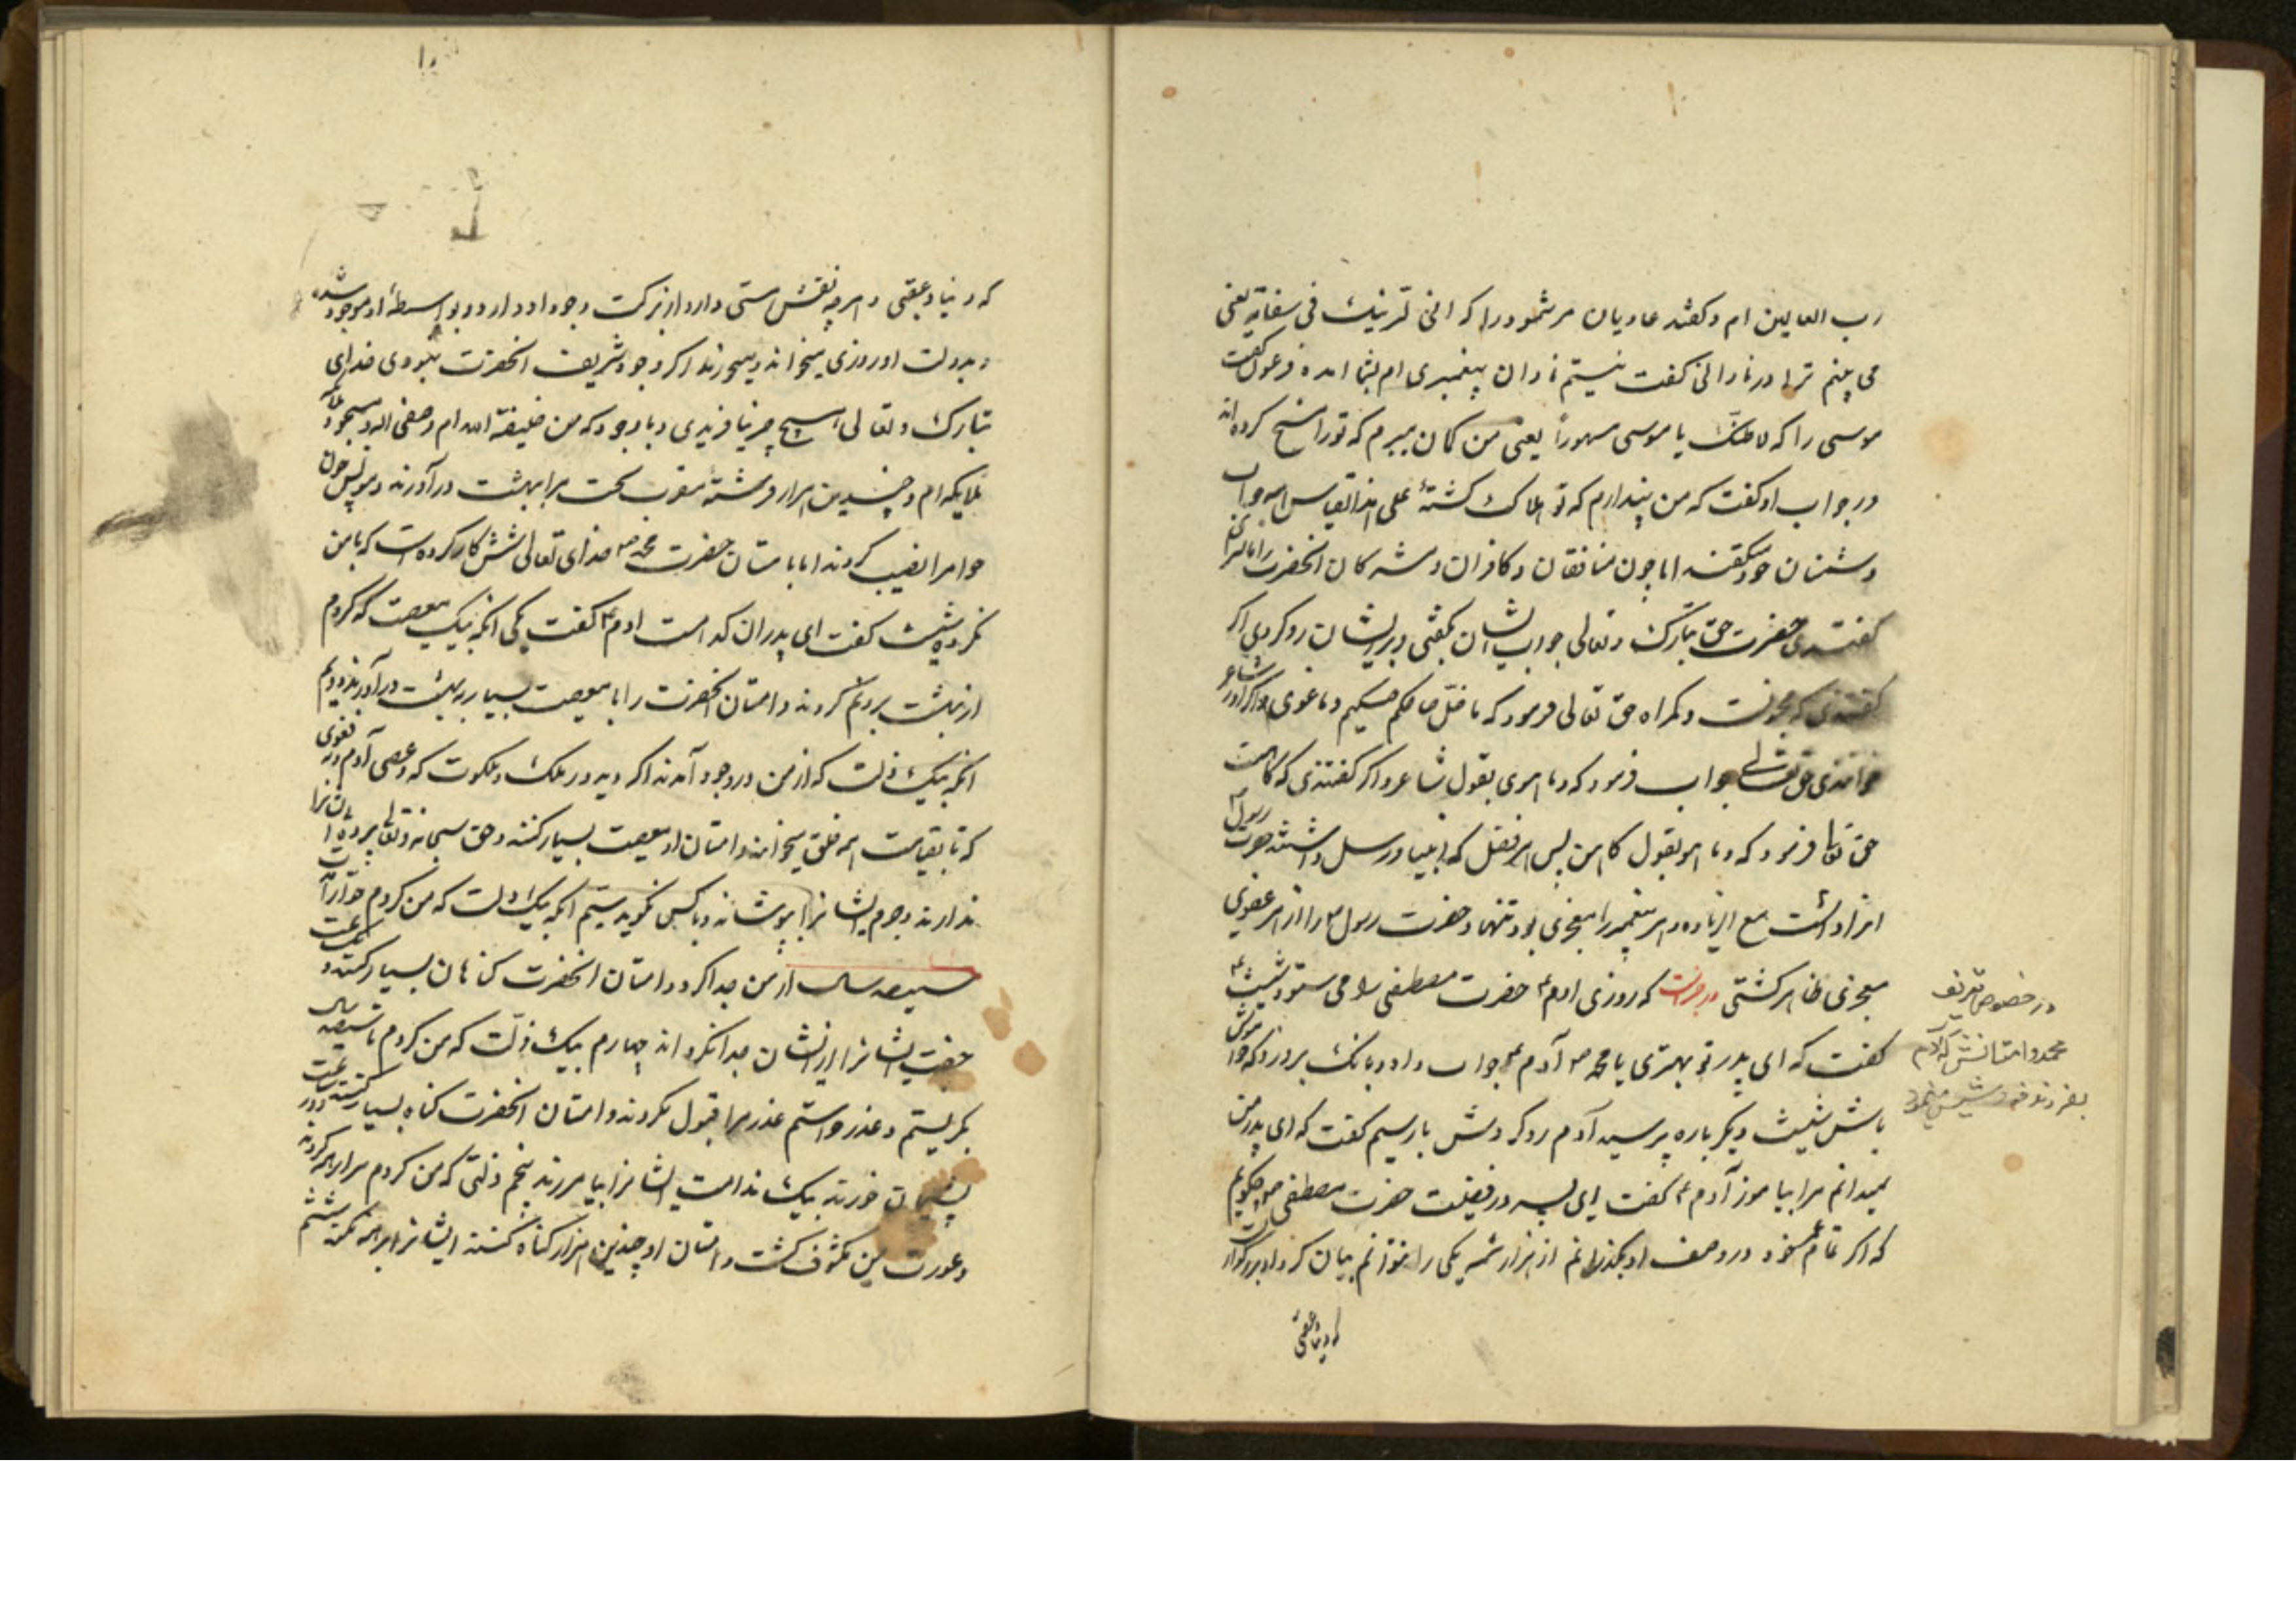 رب العالمین ام و گفتند عادیان مر هود را که انی لنریک فی سفاهة یعنی
می بینم ترا در نادانی گفت نیستم نادان پیغمبری ام بشما امده فرعون گفت
موسی را که لاظنک یا موسی مسحورا یعنی من کمان میبرم که تو را سحر کرده اند
در جواب او گفت که من پندارم که تو هلاک کشتهٔ علی هذا القیاس همه جواب
دشمنان خود میگفتند اما چون منافقان و کافران و مشرکان انحضرت را
گفتندی حضرت حق تبارک و تعالی جواب ایشان بگفتی و بر ایشان رد کردی اگر
گفتندی که مجنونست و گمراه حق تعالی فرمود که ما ضل صاحبکم و ما غوی و اگر او را شاعر
خواندندی حق تعالی جواب فرمود که و ما هو بقول شاعر و اگر گفتندی که کاهنست
حق تعالی فرمود که و ما هو بقول کاهن پس هر فضل که انبیا و رسل داشتند حضرت رسول
انرا داشت مع الزیاده و هر پیغمبر را معجزی بود تنها و حضرت رسول را از هر عضوی
معجزی ظاهر گشتی در خبرست که روزی ادم حضرت مصطفی را می ستود شیث
گفت که ای پدر تو بهتری یا محمد آدم جواب داد و بانک برو زد که خاموش
باش شیث دیگر باره پرسید آدم رو کرد سیم گفت که ای پدر من
نمیدانم مرا بیاموز آدم گفت ای پسر در فضیلت حضرت مصطفی چگویم
که اگر تمام عمر خود در وصف او بگذرانم از هزار شمه یکی را نتوانم بیان کرد او بزرگوار
که دنیا و عقبی
در خصوص تعریف
محمد و امتانش که آدم
بفرزند خود شیث مینمود
که دنیا و عقبی و هر چه نقش هستی دارد از برکت وجود او دارد و بواسطهٔ او موجود شده
و بدولت او روزی میخواند و میخورند اگر وجود شریف انحضرت نبودی خدای
تبارک و تعالی هیچ چیز نیافریدی و با وجود که من خلیفة الله ام و صفی الله و مسجود
ملایکه ام و چندین هزار فرشتهٔ مقرب تخت مرا ببهشت در آوردند و مونس چون
حوا مرا نصیب کردند اما با امتان حضرت محمد خدای تعالی شش کار کرده است که با من
نکرده شیث گفت ای پدر ان کدامست ادم گفت یکی انکه بیک معصیت که کردم
از بهشت بیرونم کردند و امتان انحضرت را با معصیت بسیار ببهشت در آورند دویم
انکه بیک ذلت که از من در وجود آمد ندا کردند در ملک و ملکوت که و عصی آدم ربه فغوی
که تا بقیامت همه خلق میخوانند و امتان او معصیت بسیار کنند و حق سبحانه و تعالی پرده ایشان را
ندارند و جرم ایشانرا بپوشاند و با کس نگوید سیم انکه بیک ذلت که من کردم حوا را
سیصد سال از من جدا کرد و امتان انحضرت کناهان بسیار کنند و
جفت ایشانرا از ایشان جدا نکرداند چهارم بیک ذلت که من کردم تا سیصد سال
بگریستم و عذر خواستم عذر مرا قبول نکردند و امتان انحضرت کناه بسیار کنند
پشیمان خورند بیک ندامت ایشانرا بیامرزند پنجم ذلتی که من کردم مرا برهنه کردند
و عورت من مکشوف گشت و امتان او چندین هزار کناه کنند ایشانرا برهنه نکند ششم